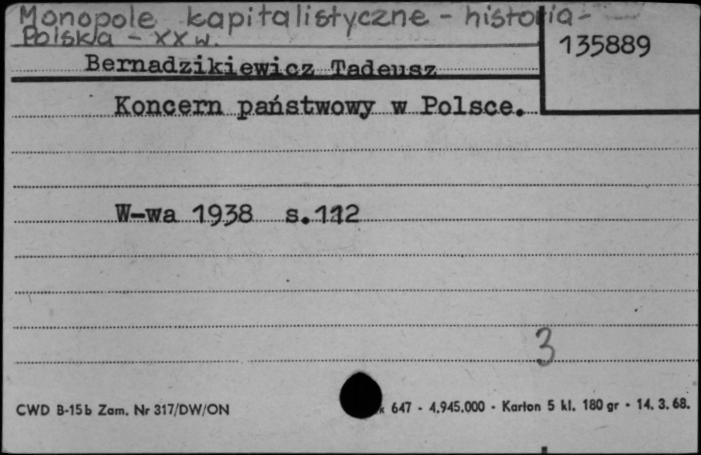 Monopole kapitalistyczne - historia -
Polska - XX w.
135889
Bernadzikiewicz Tadeusz
Koncern państwowy w Polsce.
W-wa 1938 s.112
3
CWD B-15b Zam. Nr 317/DW/ON
647 - 4.945.000 - Karton 5 kl. 180 gr - 14. 3. 68.